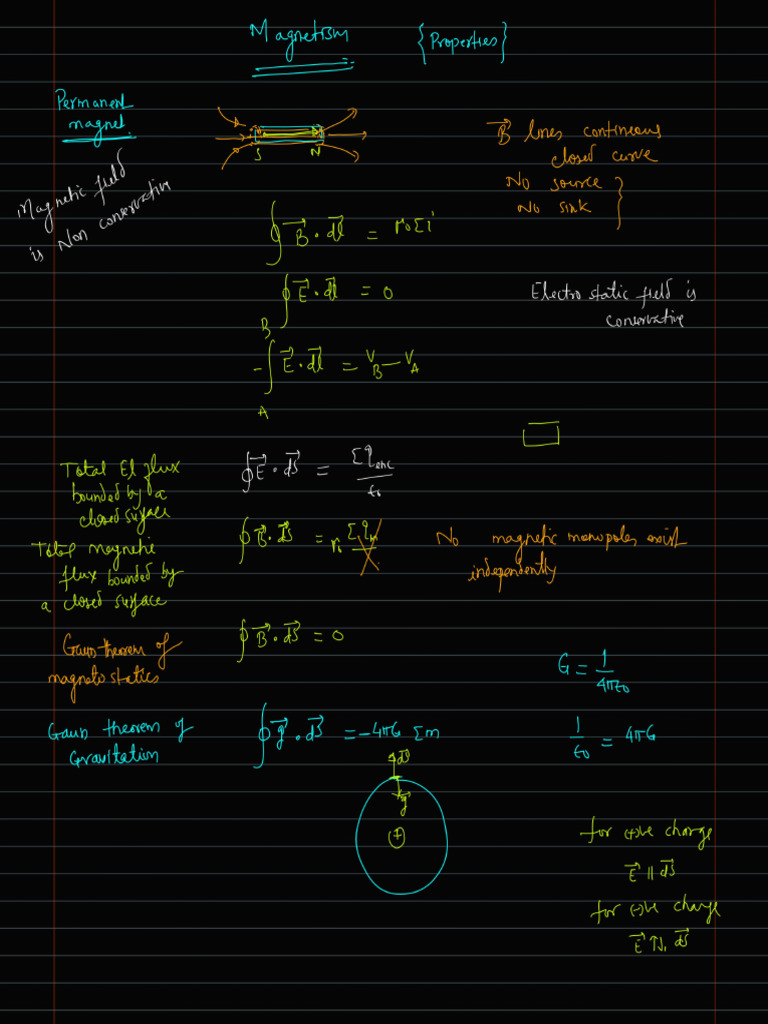 Magnetism {Properties}
Permanent
magnet
S N
B⃗ lines continuous
closed curve
No source
No sink
Magnetic field
is Non conservative
∮ B⃗ · dl⃗ = μ₀ Σi
∮ E⃗ · dl⃗ = 0
Electro static field is
conservative
B
-∫ E⃗ · dl⃗ = V_B - V_A
A
Total El flux
bounded by a
closed surface
∮ E⃗ · dS⃗ = Σq_enc / ε₀
Total magnetic
flux bounded by
a closed surface
∮ B⃗ · dS⃗ = μ₀ Σq_m
No magnetic monopoles exist
independently
Gauss theorem of
magneto statics
∮ B⃗ · dS⃗ = 0
G = 1/4πε₀
Gauss theorem of
Gravitation
∮ g⃗ · dS⃗ = -4πG Σm
1/ε₀ = 4πG
dS⃗
g⃗
+
for (+)ve charge
E⃗ || dS⃗
for (-)ve charge
E⃗ ↑↓ dS⃗